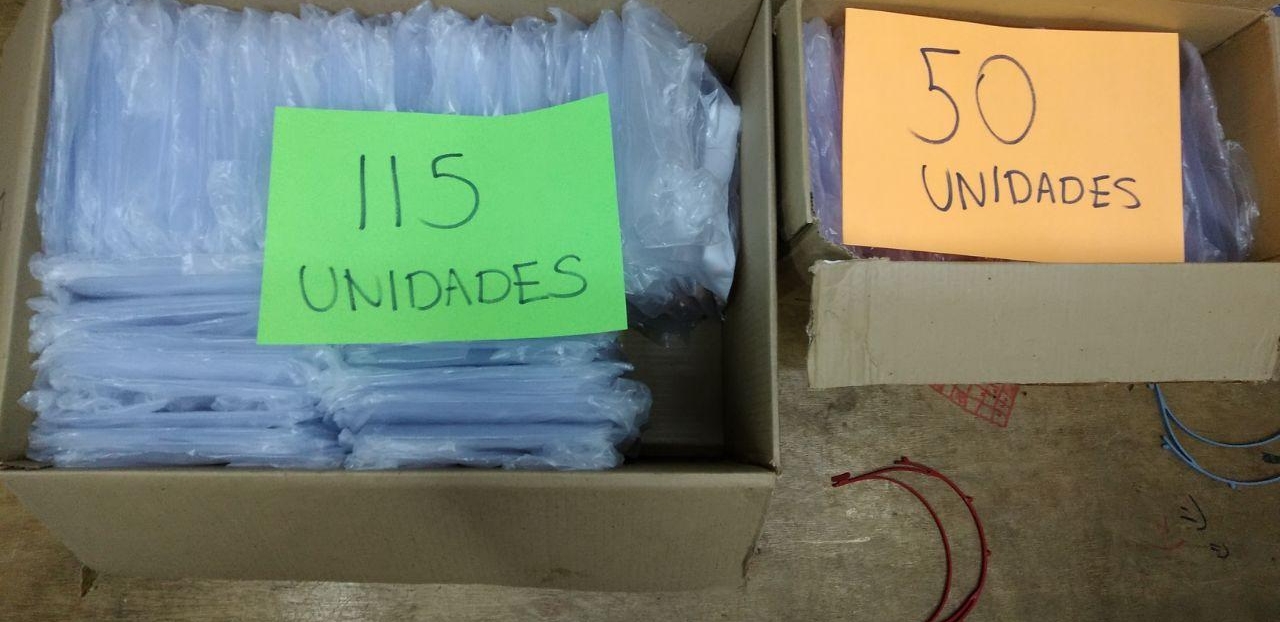 115
UNIDADES
50
UNIDADES